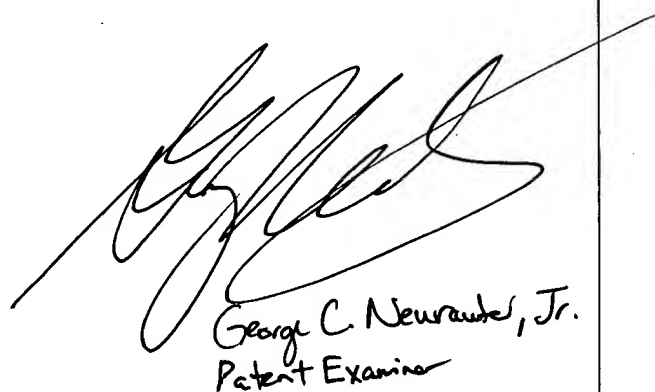 George C. Neurauter, Jr.
Patent Examiner